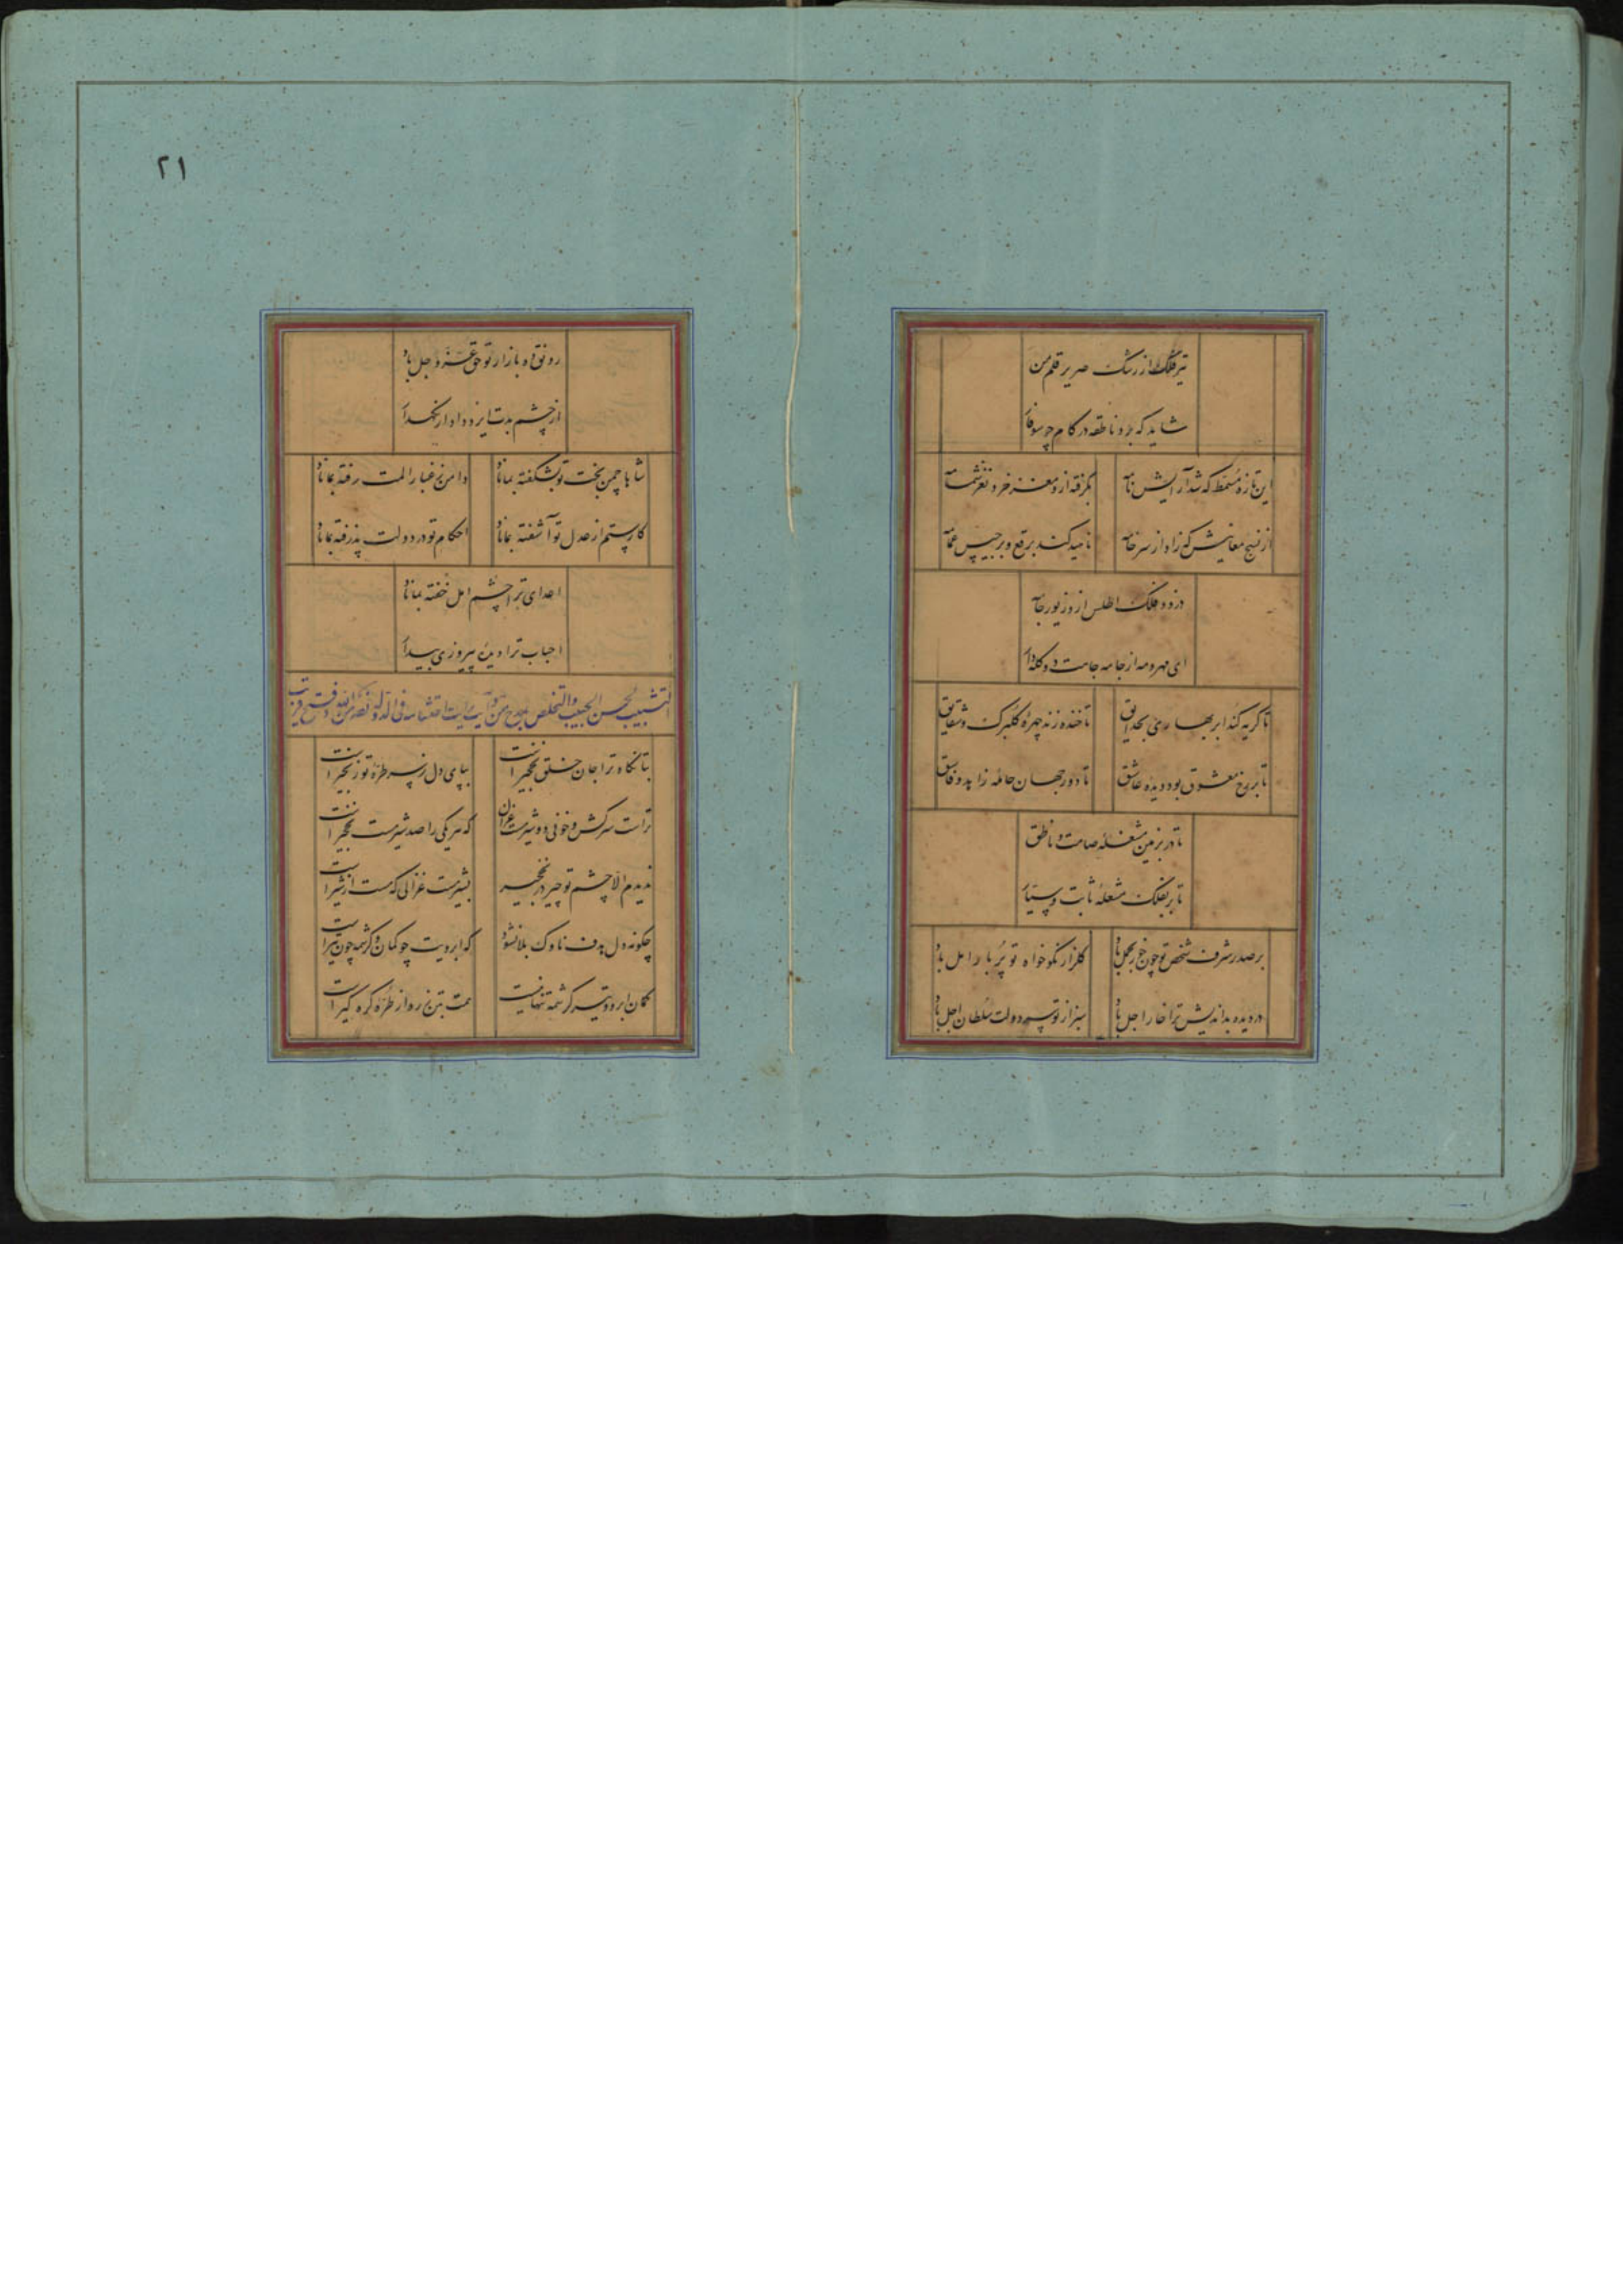 تیر فلک از رشک صریر قلم من
شاید که برد ناطقه در کام چو سوفار
این تازه مسمط که شد آرایش نامه
بگرفته ازو مغز خرد نغز شمامه
از نسج معانیش که زاد از سر خامه
ناهید کند برقع و برجیس عمامه
دزدد فلک اطلس ازو زیور جامه
ای مهر و مه از جامه جاهت دو کله‌دار
تا گریه کند ابر بهاری بحدایق
تا خنده زند چهره گلبرگ و شقایق
تا بر رخ معشوق بود دیده عاشق
تا دور جهان حامله زاید دو فاسق
تا در بزمین مشغله صامت و ناطق
تا بر بفلک مشعله ثابت و سیار
بر صدر شرف شخص تو چون خور بحمل باد
گلزار نکوخواه تو پر بار امل باد
در دیده بداندیش ترا خار اجل باد
سبز از تو سپر دولت سلطان اجل باد
۲۱
رونق ده بازار تو حق عز و جل باد
از چشم بدت ایزد دادار نگهدار
شاها چمن بخت تو بشکفته بماناد
دامن ز غبار المت رفته بماناد
کار ستم از عدل تو آشفته بماناد
احکام تو در دولت پذرفته بماناد
اعدای ترا چشم امل خفته بماناد
احباب ترا دیده پیروزی بیدار
التشبیب بحسن الحبیب والتخلص بمدح من آیت رایت احتشامه فی الدوله نصر من الله و فتح قریب
بتا نگاه ترا جان خلق نخجیر است
بپای دل ز سر طره تو زنجیر است
تراست سرکش و خونی دو شیرمست غزال
که هر یکی را صد شیرمست نخجیر است
ندیدم الا چشم تو چیر در نخجیر
بشیرمست غزالی که مست از شیر است
چگونه دل هدف ناوک بلا نشود
که ابرویت چو کمان و کرشمه چون تیر است
کمان ابرو و تیر کرشمه تنها نیست
بت تیزرو از طره گره گیر است